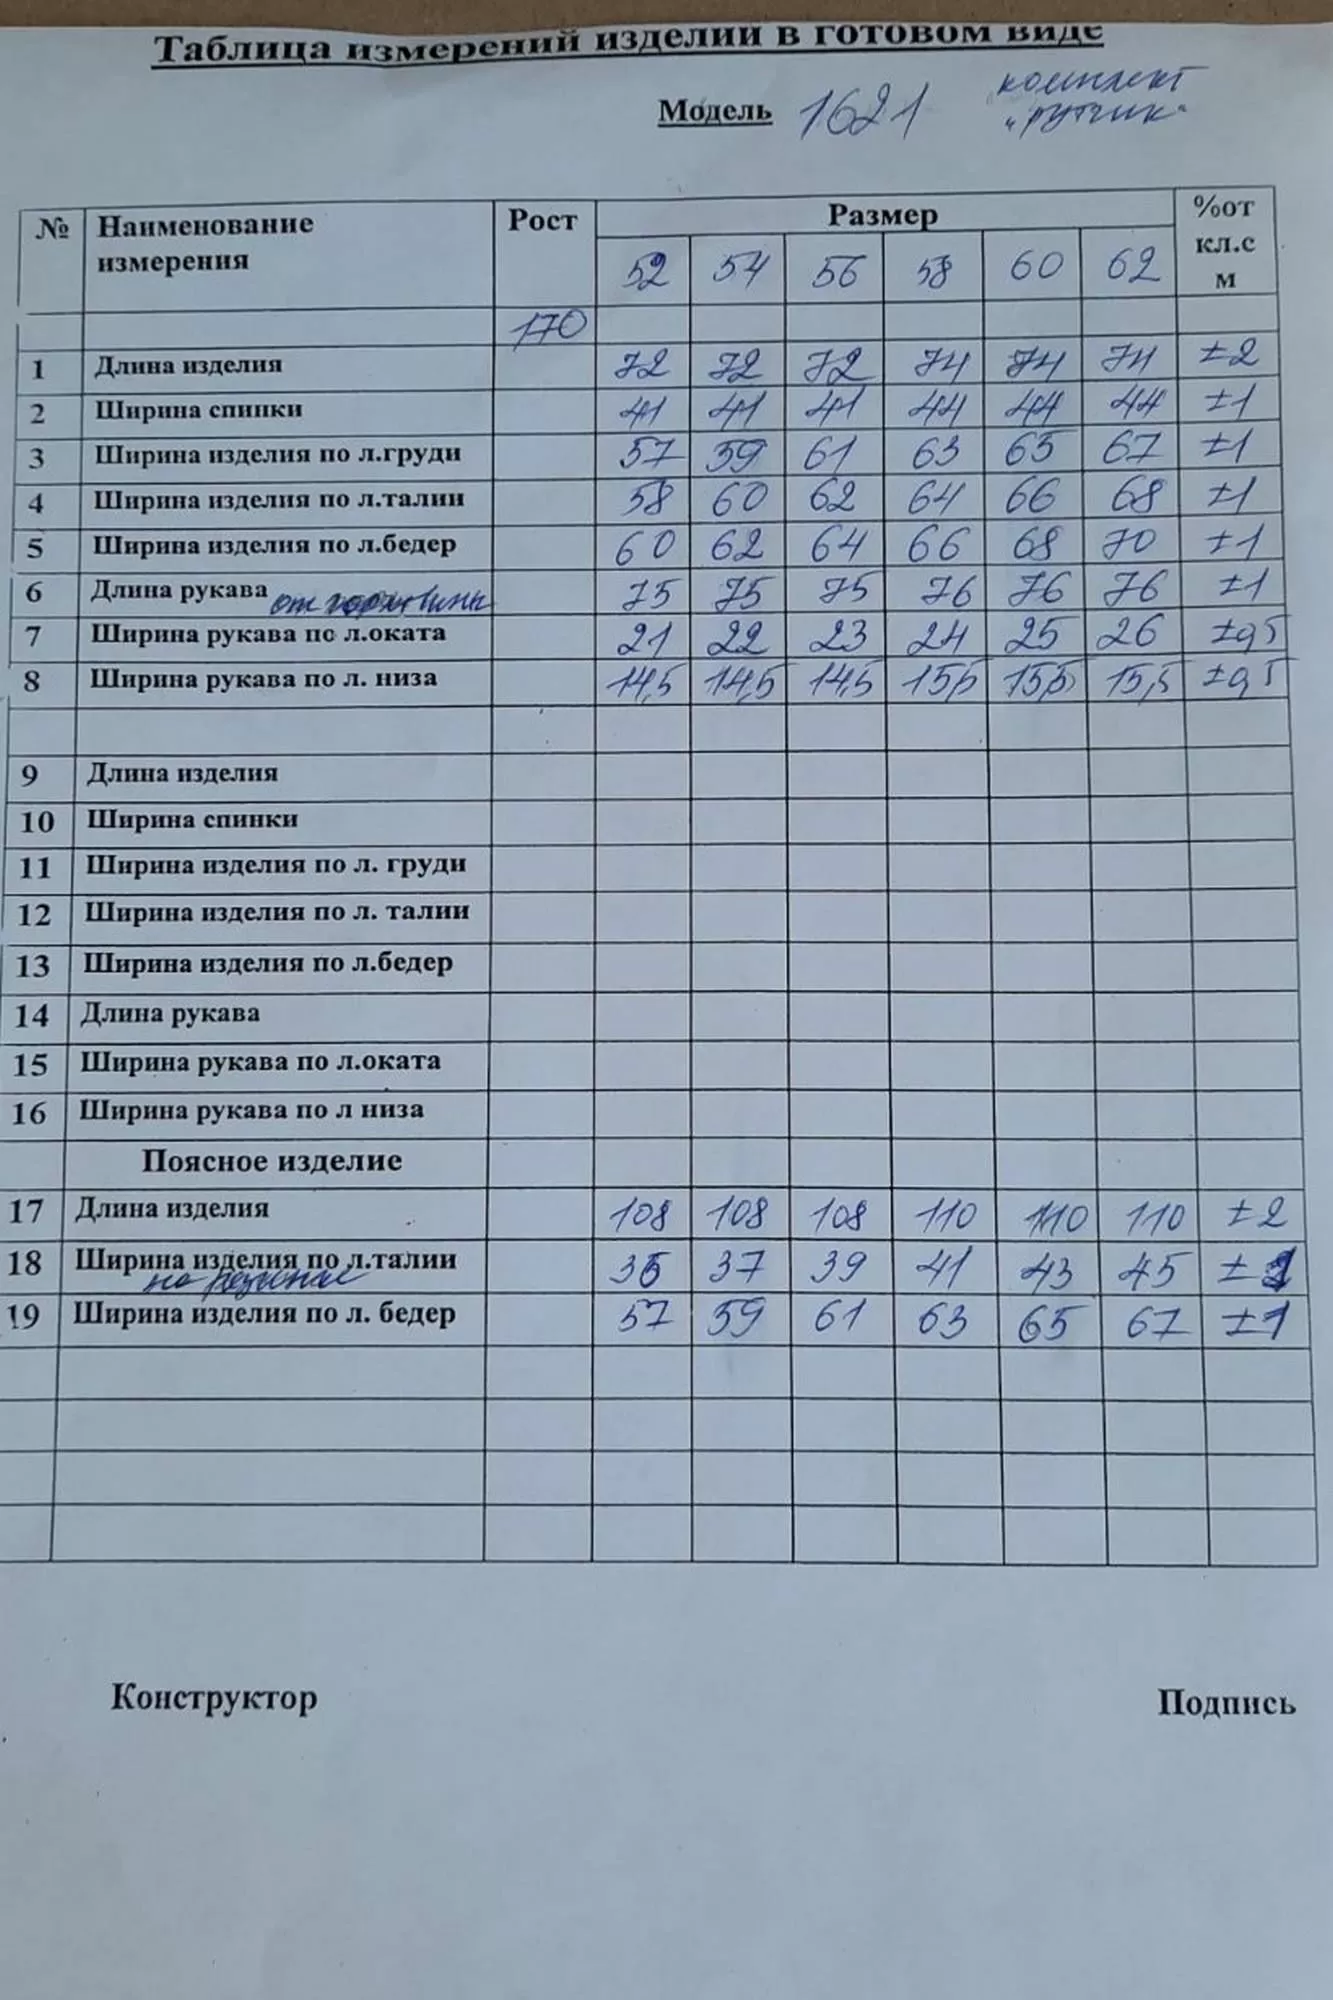 Таблица измерений изделии в готовом виде
Модель 1621 комплект
"Рутчик"
№ Наименование измерения Рост Размер %от кл.с м
52 54 56 58 60 62
170
1 Длина изделия 72 72 72 74 74 74 ±2
2 Ширина спинки 41 41 41 44 44 44 ±1
3 Ширина изделия по л.груди 57 59 61 63 65 67 ±1
4 Ширина изделия по л.талии 58 60 62 64 66 68 ±1
5 Ширина изделия по л.бедер 60 62 64 66 68 70 ±1
6 Длина рукава от горловины 75 75 75 76 76 76 ±1
7 Ширина рукава по л.оката 21 22 23 24 25 26 ±0,5
8 Ширина рукава по л. низа 14,5 14,5 14,5 15,5 15,5 15,5 ±0,5
9 Длина изделия
10 Ширина спинки
11 Ширина изделия по л. груди
12 Ширина изделия по л. талии
13 Ширина изделия по л.бедер
14 Длина рукава
15 Ширина рукава по л.оката
16 Ширина рукава по л низа
Поясное изделие
17 Длина изделия 108 108 108 110 110 110 ±2
18 Ширина изделия по л.талии 35 37 39 41 43 45 ±1
на резинке
19 Ширина изделия по л. бедер 57 59 61 63 65 67 ±1
Конструктор Подпись